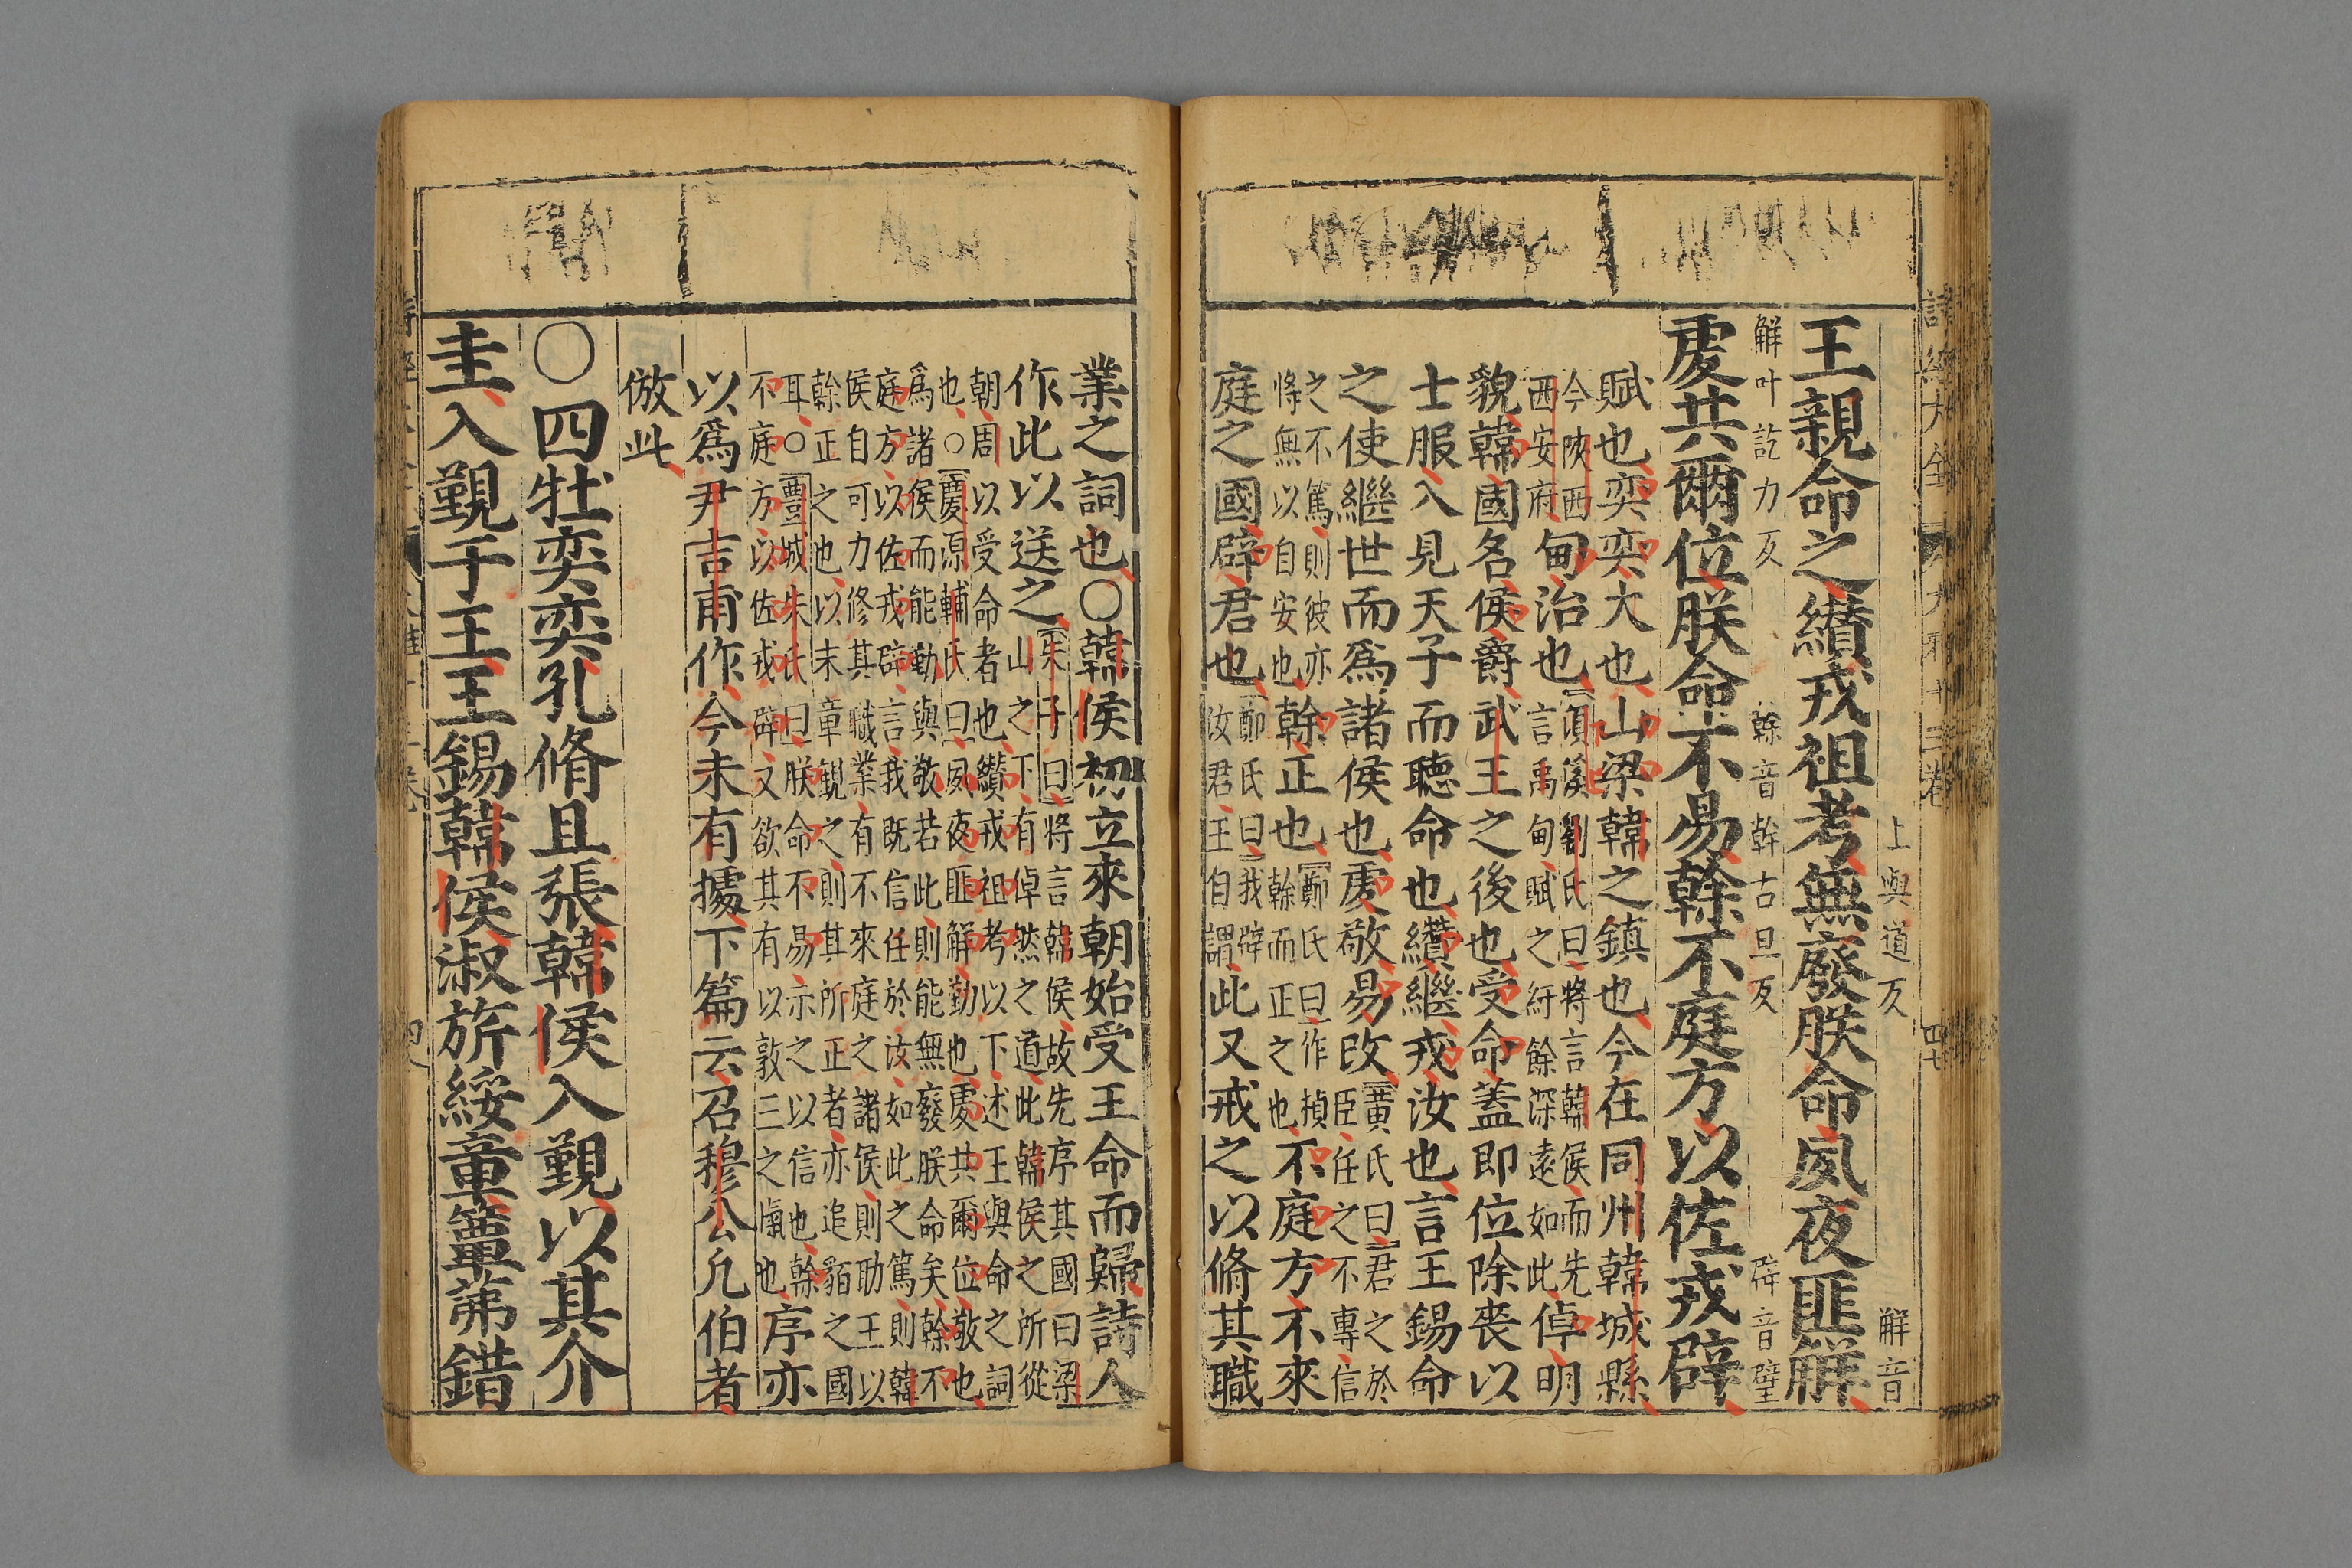 上與道反　解音
王親命之纘戎祖考無廢朕命夙夜匪解
解叶訖力反　榦音幹古旦反　辟音璧
虔共爾位朕命不易榦不庭方以佐戎辟
賦也奕奕大也山梁韓之鎮也今在同州韓城縣
今陝西
西安府
甸治也
須溪劉氏曰將言韓侯而先
言禹甸賦之紆餘深遠如此
倬明
貌韓國名侯爵武王之後也受命蓋即位除喪以
士服入見天子而聽命也纘繼戎汝也言王錫命
之使繼世而爲諸侯也虔敬易改
黃氏曰君之於
臣任之不專信
之不篤則彼亦
將無以自安也
榦正也
鄭氏曰作楨
榦而正之也
不庭方不來
庭之國辟君也
鄭氏曰我辟
汝君王自謂
此又戒之以脩其職
業之詞也○韓侯初立來朝始受王命而歸詩人
作此以送之
朱子曰將言韓侯故先序其國曰梁
山之下有倬然之道此韓侯之所從
朝周以受命者也纘戎祖考以下述王與命之詞
也○慶源輔氏曰夙夜匪解勤也虔共爾位敬也
爲諸侯而能勤與敬若此則能無廢朕命矣榦不
庭方以佐戎辟言我旣信任於汝如此之篤則韓
侯自可力修其職業有不來庭之諸侯則助王以
榦正之也以末章觀之則其所正者亦追貊之國
耳○豐城朱氏曰朕命不易示之以信也榦
不庭方以佐戎辟又欲其有以敦三之愾也
序亦
以爲尹吉甫作今未有據下篇云召穆公凡伯者
倣此
○四牡奕奕孔脩且張韓侯入覲以其介
圭入覲于王王錫韓侯淑旂綏章簟茀錯